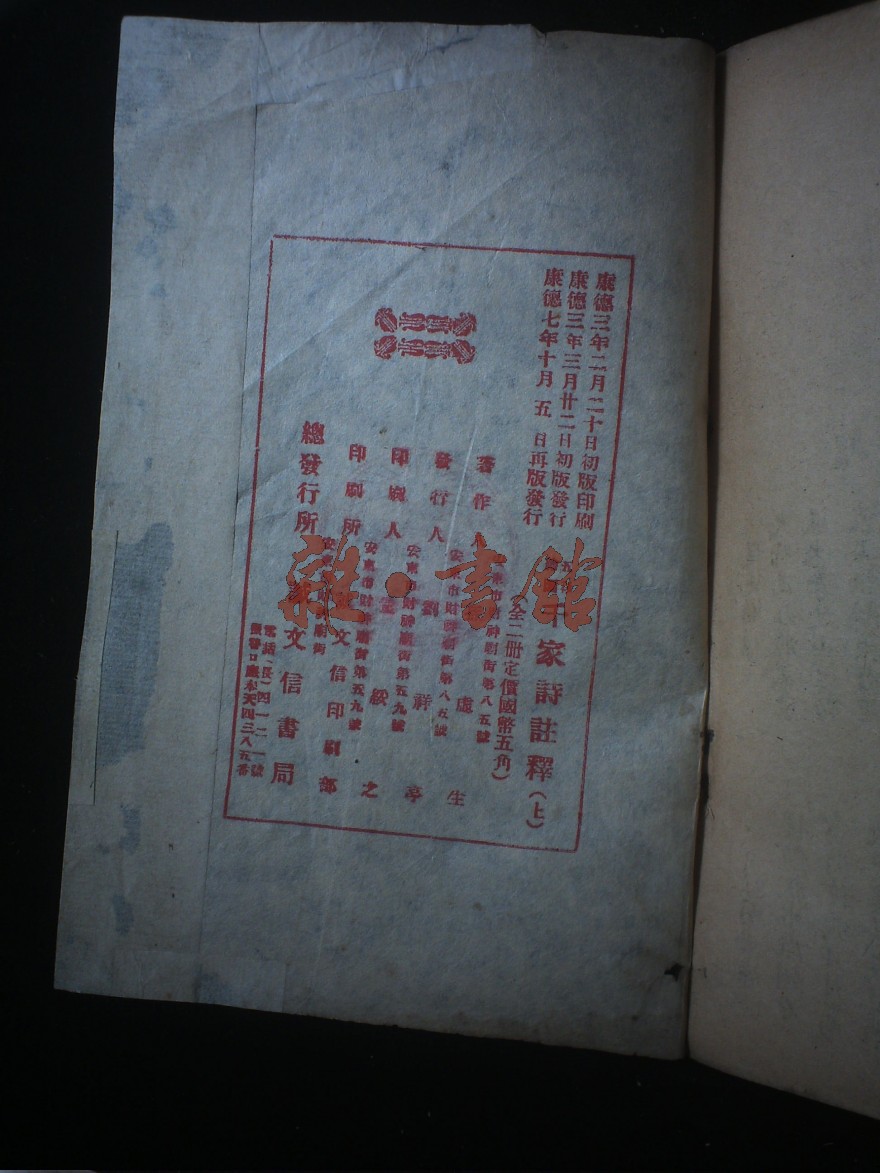 康德三年二月二十日初版印刷
康德三年三月廿二日初版發行
康德七年十月五日再版發行
千家詩註釋(上)
全二册定價國幣五角)
著作
市財神廟街第八五號
虛生
發行人
安東市財神廟街第八五號
劉祥亭
印刷人
安東市財神廟街第五九號
綏之
印刷所
安東市財神廟街第五九號
文信印刷部
總發行所
安東
廟街
文信書局
電話(長)四一二一號
振替口座奉天四三八五番
雜·書館